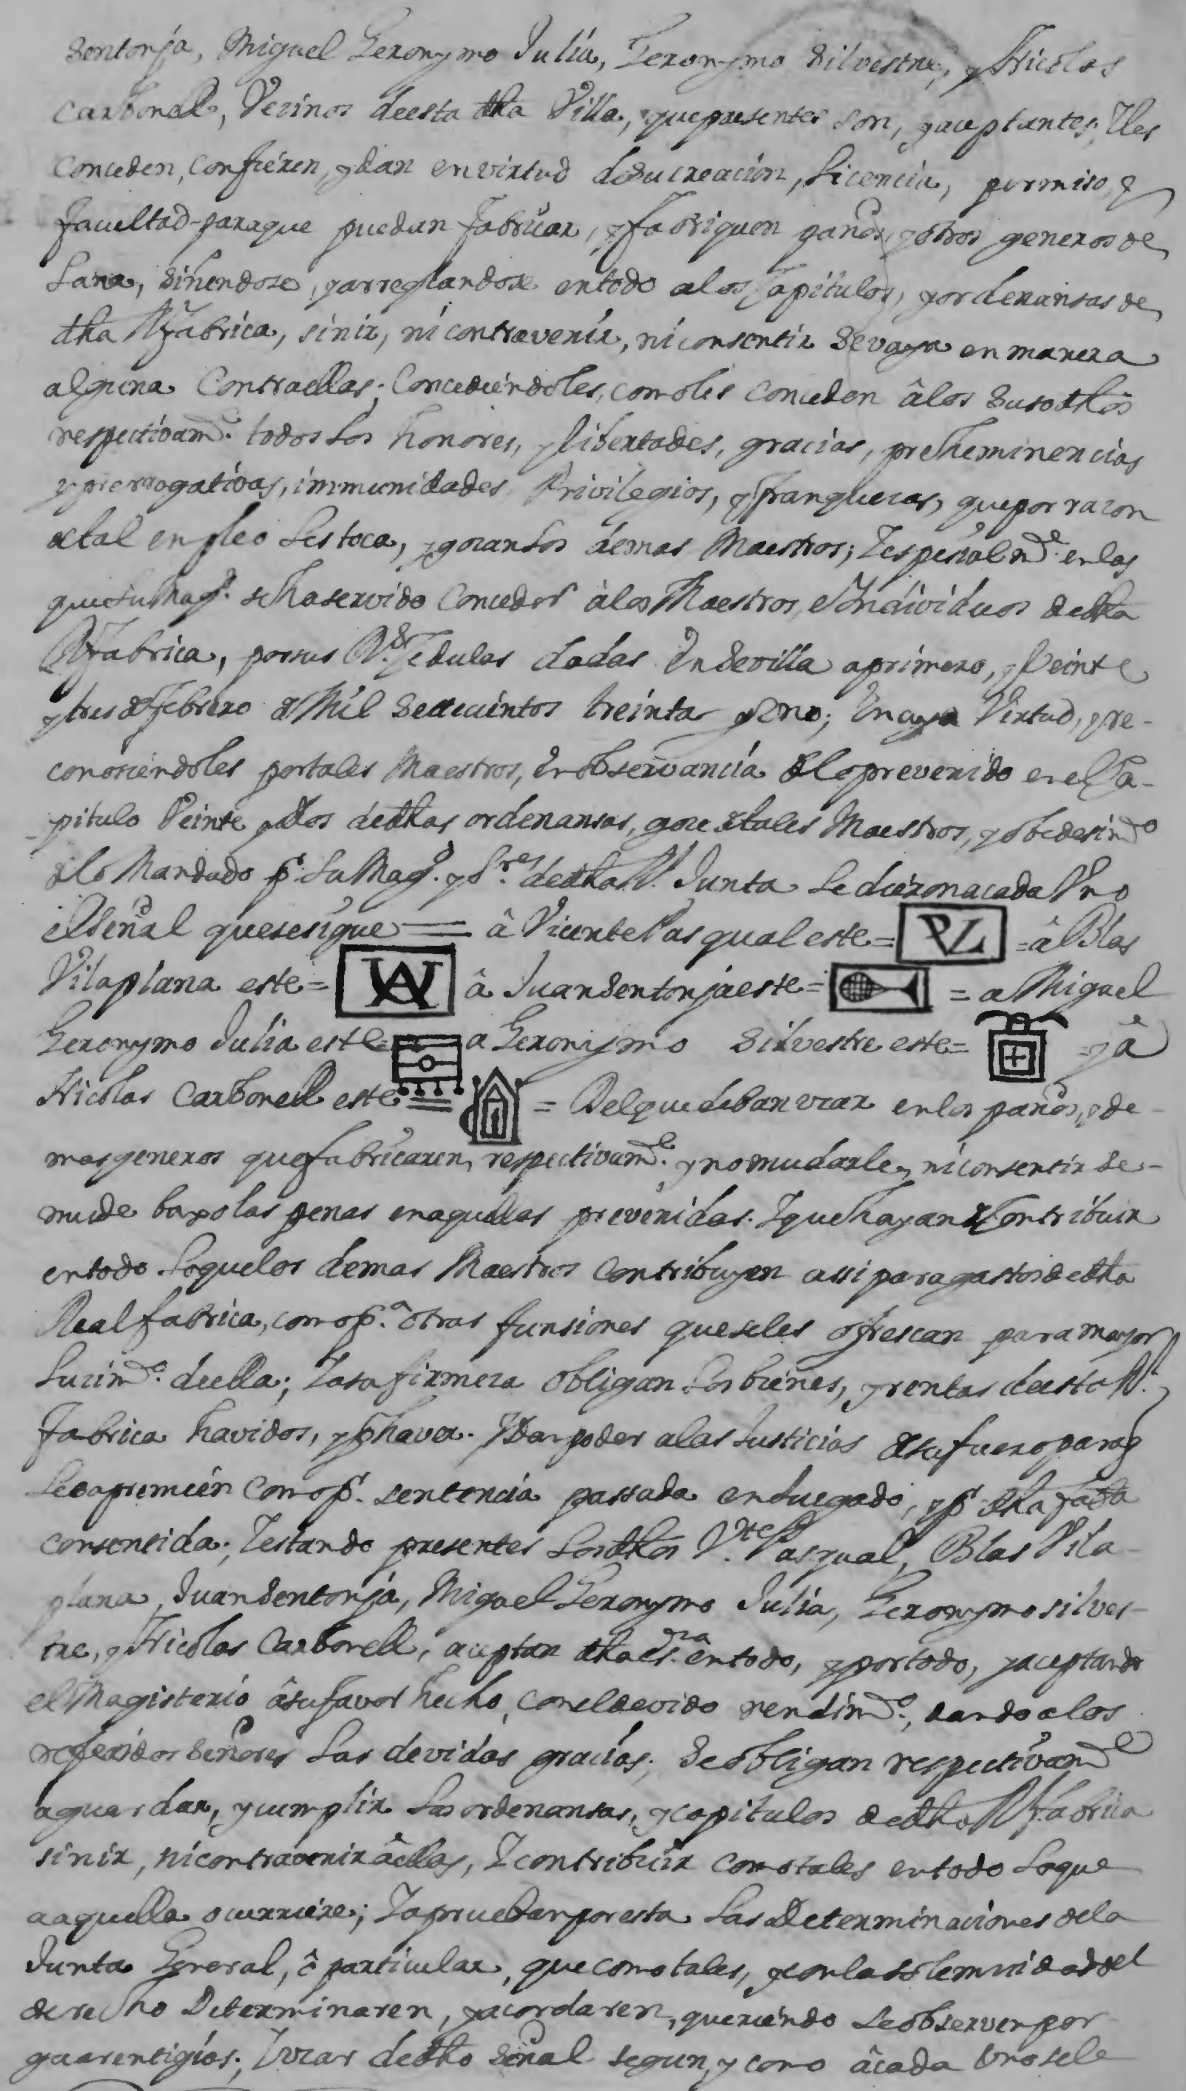 Sentonja, Miguel Geronymo Julia, Geronymo Silvestre, y Nicolas
Carbonell, Vezinos deesta dha Villa, quepresentes son, yaceptantes; Iles
Conceden, confieren, ydan envirtud desucreación, Licencia, permiso, y
facultad paraque puedan fabricar, yfabriquen paños, yotros generos de
Lana, siñendose, yarreglandose entodo alos Capitulos, yordenansas de
dha Rl fabrica, sinir, ni contravenir, ni consentir sevaya en manera
alguna Contraellas; Concediéndoles, comoles conceden âlos Susodhos
respectivamte. todos Los honores, y libertades, gracias, preheminencias
y prerrogativas, immunidades Privilegios, y franquezas, quepor razon
detal enpleo Lestoca, ygozanLos demas Maestros; Iespecialmte. enlas
queSuMagd. sehaservido Conceder àlos Maestros, eIndividuos dedha
Rl fabrica, porsus Rs. Zedulas dadas En Sevilla aprimero, y Veinte
ytres de febrero de Mil Setecientos treinta yUno; Encuya Virtud, yre-
conosciéndoles portales Maestros, Enobservancia deloprevenido enelCa-
pitulo Veinte ydos dedhas ordenansas, que detales Maestros, yobedesimto
deLo Mandado pr. Su Magd. y Sres. dedha Rl. Junta Ledieronacada Uno
elSeñal quesesigue = â Vicente Pasqual este = PVL = â Blas
Vilaplana este = VA â Juan Sentonja este = = a Miguel
Geronymo Julia este = a Geronymo Silvestre este = = y â
Nicolas Carbonell este = = Delquedeban vzar enlos paños, yde-
mas generos quefabricaren, respectivamte. ynomudarle, niconsentir se-
mude baxolas penas enaquellas prevenidas. Iquehayan de Contribuir
entodo Loquelos demas Maestros Contribuyen assi paragastos dedha
Real fabrica, como pa. otras funsiones queseles ofrescan para mayor
Luzimto. deella; Iasu firmeza Obligan Los bienes, yrentas deesta Rl.
fabrica havidos, y phaver. Ydanpoder alas Justicias desufuero paraq
Leoapremien Como pr. sentencia passada enJuzgado, y pr. dha fabca
consentida; Iestando presentes Losdhos Vte. Pasqual, Blas Vila-
plana, Juan Sentonja, Miguel Geronymo Julia, Geronymo Silves-
tre, y Nicolas Carbonell, aceptan dha esra. entodo, yportodo, yaceptando
el Magisterio âsufavor hecho, coneldevido rendimto., dando alos
referidos Señores Las devidas gracias; Seobligan respectivamte
aguardar, ycumplir Las ordenansas, ycapitulos dedha Rl fabrica
sinir, nicontravenir âellas, Icontribuir comotales entodo Loque
aaquella ocurriere; Iapruebanporesta Las Determinaciones dela
Junta General, ô particular, que comotales, yconlasolemnidad del
derecho Determinaren, yacordaren, queriéndo Seobserven por
guarentigios; Ivzar dedho señal segun, y como âcada Unosele